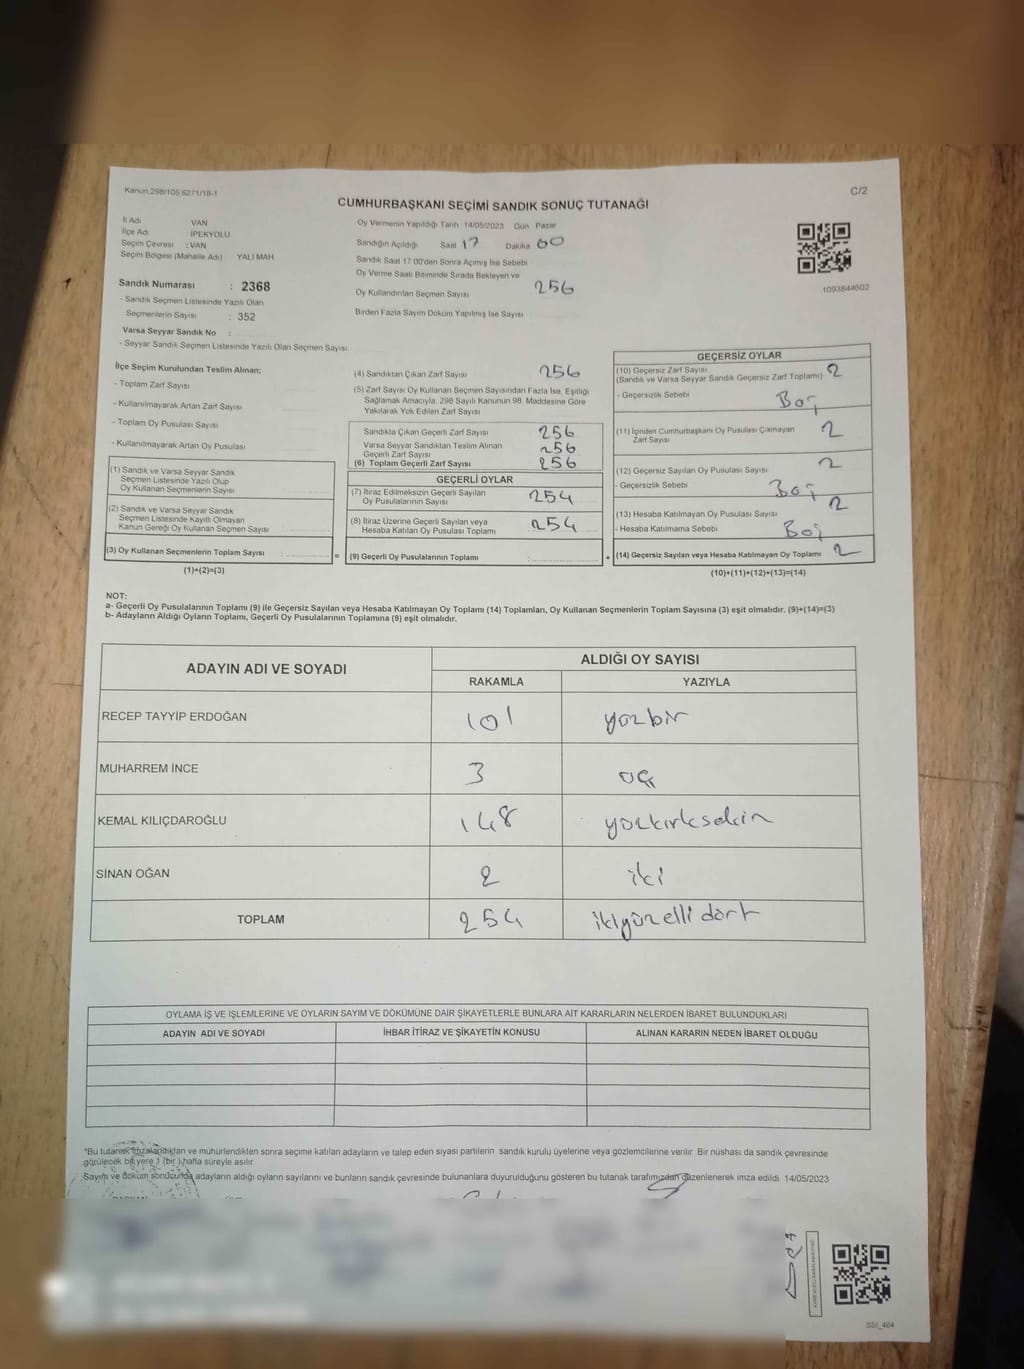 Kanun 298/105 6271/18-1
C/2
CUMHURBAŞKANI SEÇİMİ SANDIK SONUÇ TUTANAĞI
İl Adı VAN
İlçe Adı İPEKYOLU
Seçim Çevresi : VAN
Seçim Bölgesi (Mahalle Adı) YALI MAH
Sandık Numarası : 2368
- Sandık Seçmen Listesinde Yazılı Olan
Seçmenlerin Sayısı : 352
Varsa Seyyar Sandık No :
- Seyyar Sandık Seçmen Listesinde Yazılı Olan Seçmen Sayısı
Oy Vermenin Yapıldığı Tarih 14/05/2023 Gün Pazar
Sandığın Açıldığı Saat 17 Dakika 00
Sandık Saat 17:00'den Sonra Açılmış İse Sebebi
Oy Verme Saati Bitiminde Sırada Bekleyen ve
Oy Kullandırılan Seçmen Sayısı 256
Birden Fazla Sayım Döküm Yapılmış İse Sayısı
1093844602
İlçe Seçim Kurulundan Teslim Alınan:
- Toplam Zarf Sayısı
- Kullanılmayarak Artan Zarf Sayısı
- Toplam Oy Pusulası Sayısı
- Kullanılmayarak Artan Oy Pusulası
(1) Sandık ve Varsa Seyyar Sandık
Seçmen Listesinde Yazılı Olup
Oy Kullanan Seçmenlerin Sayısı
(2) Sandık ve Varsa Seyyar Sandık
Seçmen Listesinde Kayıtlı Olmayan
Kanun Gereği Oy Kullanan Seçmen Sayısı
(3) Oy Kullanan Seçmenlerin Toplam Sayısı :
(1)+(2)=(3)
(4) Sandıktan Çıkan Zarf Sayısı 256
(5) Zarf Sayısı Oy Kullanan Seçmen Sayısından Fazla İse, Eşitliği
Sağlamak Amacıyla, 298 Sayılı Kanunun 98. Maddesine Göre
Yakılarak Yok Edilen Zarf Sayısı
Sandıkta Çıkan Geçerli Zarf Sayısı 256
Varsa Seyyar Sandıktan Teslim Alınan
Geçerli Zarf Sayısı 256
(6) Toplam Geçerli Zarf Sayısı 256
GEÇERLİ OYLAR
(7) İtiraz Edilmeksizin Geçerli Sayılan
Oy Pusulalarının Sayısı 254
(8) İtiraz Üzerine Geçerli Sayılan veya
Hesaba Katılan Oy Pusulası Toplamı 254
= (9) Geçerli Oy Pusulalarının Toplamı :
GEÇERSİZ OYLAR
(10) Geçersiz Zarf Sayısı 2
(Sandık ve Varsa Seyyar Sandık Geçersiz Zarf Toplamı)
- Geçersizlik Sebebi Boş
(11) İçinden Cumhurbaşkanı Oy Pusulası Çıkmayan
Zarf Sayısı 2
(12) Geçersiz Sayılan Oy Pusulası Sayısı 2
- Geçersizlik Sebebi Boş
(13) Hesaba Katılmayan Oy Pusulası Sayısı 2
- Hesaba Katılmama Sebebi Boş
+ (14) Geçersiz Sayılan veya Hesaba Katılmayan Oy Toplamı 2
(10)+(11)+(12)+(13)=(14)
NOT:
a- Geçerli Oy Pusulalarının Toplamı (9) ile Geçersiz Sayılan veya Hesaba Katılmayan Oy Toplamı (14) Toplamları, Oy Kullanan Seçmenlerin Toplam Sayısına (3) eşit olmalıdır. (9)+(14)=(3)
b- Adayların Aldığı Oyların Toplamı, Geçerli Oy Pusulalarının Toplamına (9) eşit olmalıdır.
ADAYIN ADI VE SOYADI
ALDIĞI OY SAYISI
RAKAMLA YAZIYLA
RECEP TAYYİP ERDOĞAN 101 yüzbir
MUHARREM İNCE 3 üç
KEMAL KILIÇDAROĞLU 148 yüzkırksekin
SİNAN OĞAN 2 iki
TOPLAM 254 ikiyüzelli dört
OYLAMA İŞ VE İŞLEMLERİNE VE OYLARIN SAYIM VE DÖKÜMÜNE DAİR ŞİKAYETLERLE BUNLARA AİT KARARLARIN NELERDEN İBARET BULUNDUKLARI
ADAYIN ADI VE SOYADI İHBAR İTİRAZ VE ŞİKAYETİN KONUSU ALINAN KARARIN NEDEN İBARET OLDUĞU
*Bu tutanak imzalandıktan ve mühürlendikten sonra seçime katılan adayların ve talep eden siyasi partilerin sandık kurulu üyelerine veya gözlemcilerine verilir. Bir nüshası da sandık çevresinde
görülecek bir yere 1 (bir) hafta süreyle asılır.
Sayım ve döküm sonucunda adayların aldığı oyların sayılarını ve bunların sandık çevresinde bulunanlara duyurulduğunu gösteren bu tutanak tarafımızdan düzenlenerek imza edildi 14/05/2023